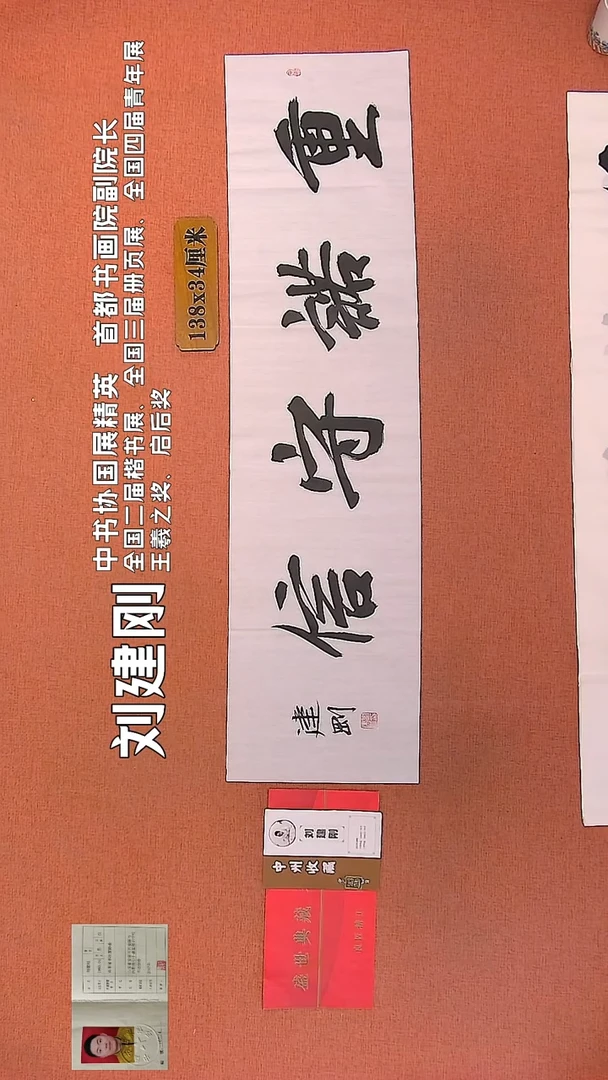 刘建刚
中书协国展精英 首都书画院副院长
全国二届楷书展、全国三届册页展、全国四届青年展
王羲之奖、启后奖
138x34厘米
重諾守信
建剛
刘建刚
中州收藏
盛世典藏